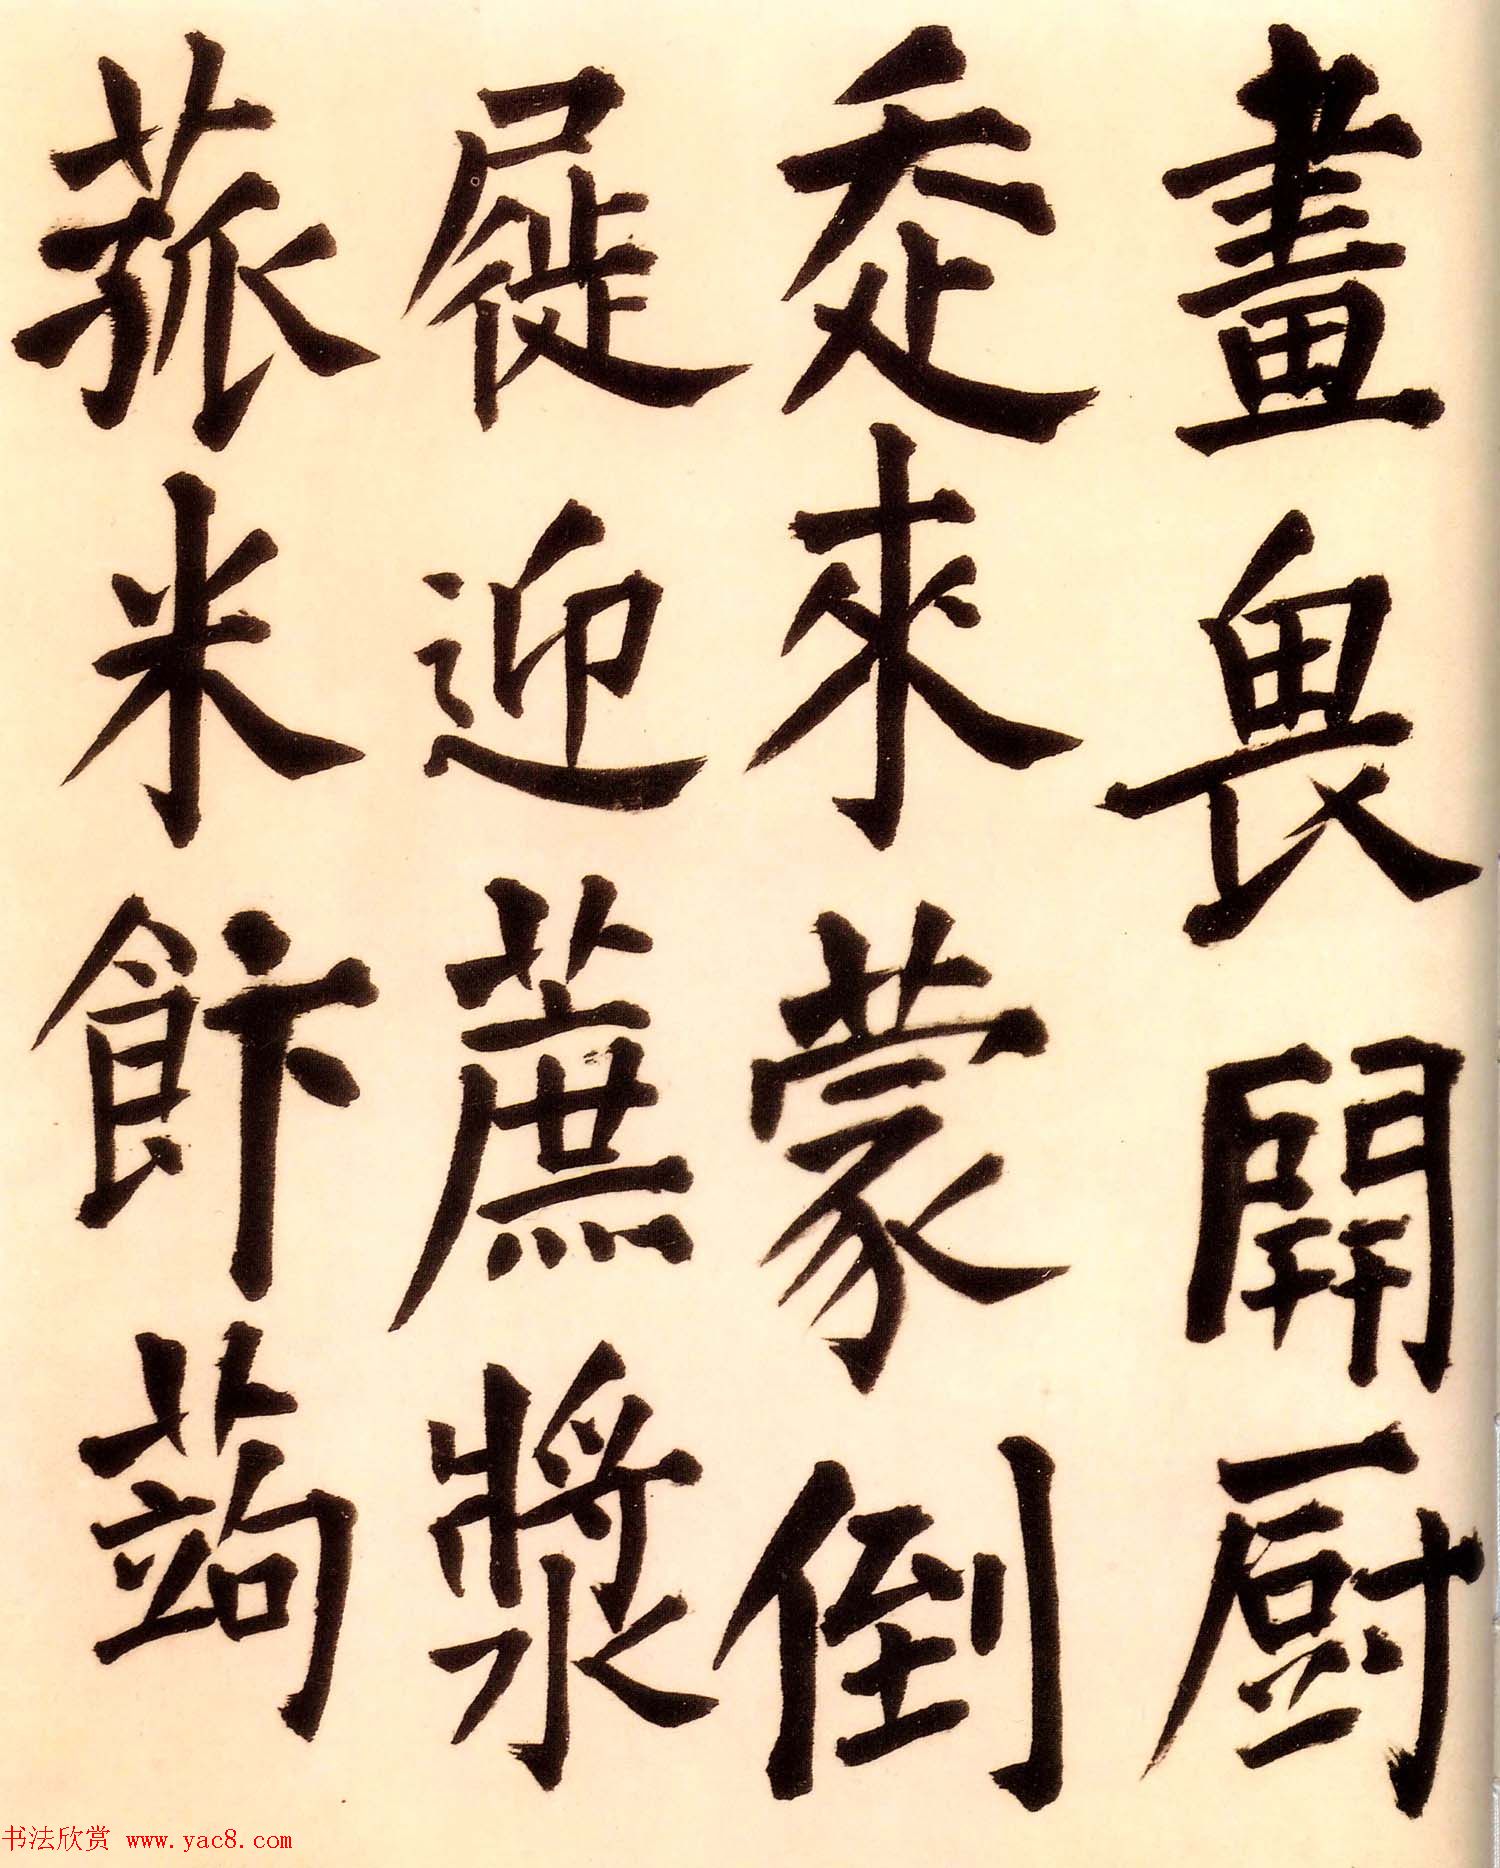 畫畏開廚
走來蒙倒
屣迎蔗漿
菰米飰蒟
书法欣赏 www.yac8.com